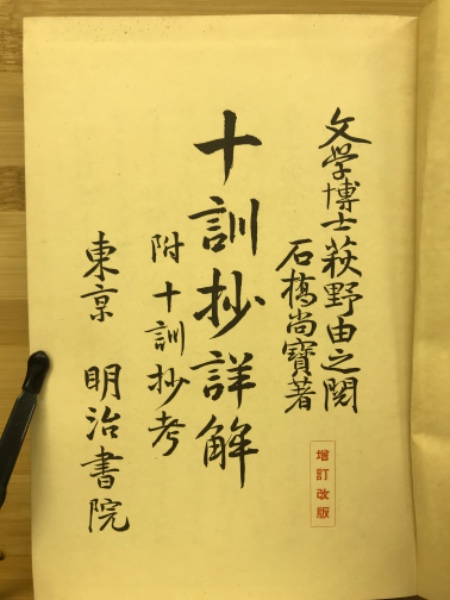 文学博士萩野由之閲
石橋尚寶著
増訂改版
十訓抄詳解
附十訓抄考
東京 明治書院